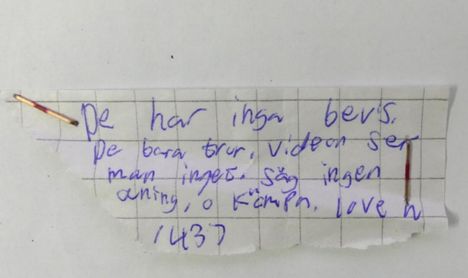 De har inga bevis.
De bara tror, videon ser
man inget. Säg ingen
aning, o kämpa. love n
1437